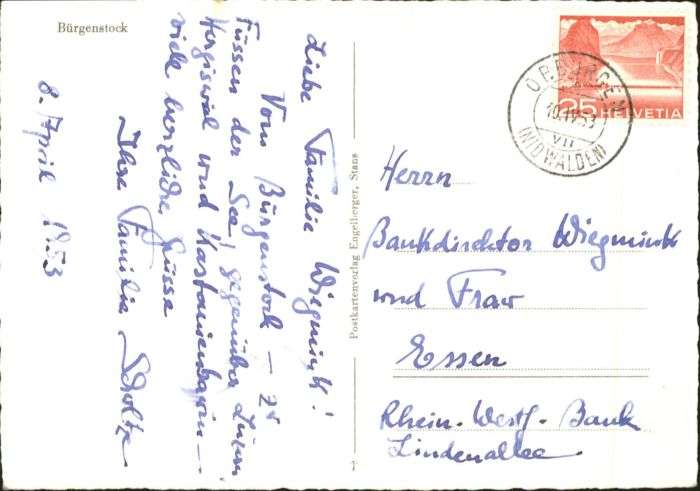 Bürgenstock
8. April 1953
Liebe Familie Wiegmink!
Vom Bürgenstock – zu
Füssen der See, gegenüber Luzern,
Hergiswil und Kastanienbaum –
viele herzliche Grüsse
Ihre Familie Scholtz
Postkartenverlag Engelberger, Stans
OBBÜRGEN
10.IV.53
VII
(NIDWALDEN)
25 HELVETIA
Herrn
Bankdirektor Wiegmink
und Frau
Essen
Rhein.-Westf.-Bank
Lindenallee.